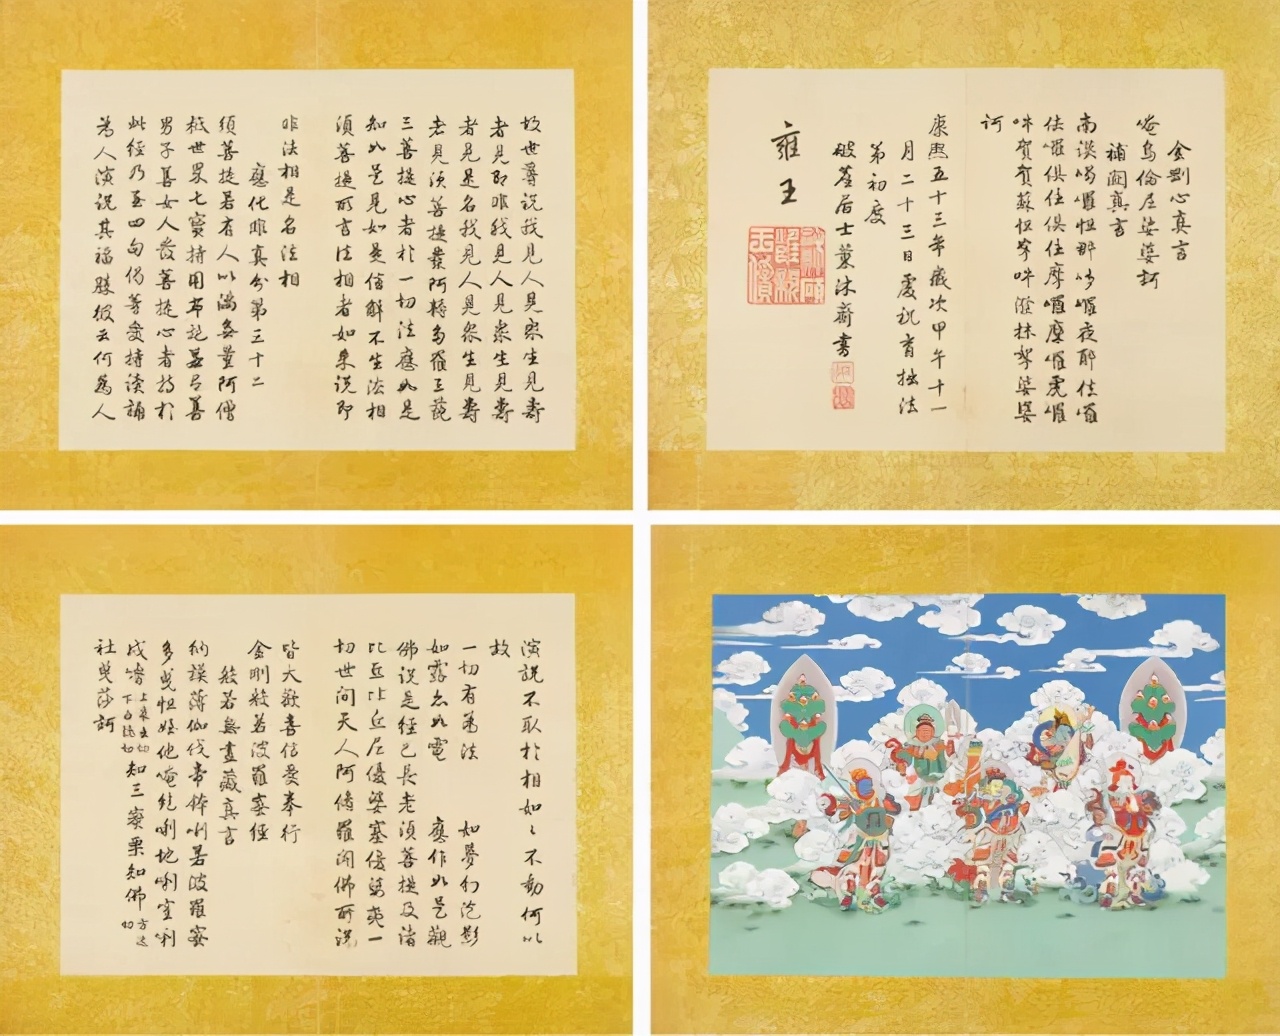 故世尊説我見人見衆生見壽
者見即非我見人見衆生見壽
者見是名我見人見衆生見壽
者見須菩提發阿耨多羅三藐
三菩提心者於一切法應如是
知如是見如是信解不生法相
須菩提所言法相者如來説即
非法相是名法相
應化非真分第三十二
須菩提若有人以滿無量阿僧
祇世界七寶持用布施若有善
男子善女人發菩提心者持於
此經乃至四句偈等受持讀誦
為人演説其福勝彼云何為人
演説不取於相如〻不動何以
故
一切有為法 如夢幻泡影
如露亦如電 應作如是觀
佛説是經已長老須菩提及諸
比丘比丘尼優婆塞優婆夷一
切世間天人阿脩羅聞佛所説
皆大歡喜信受奉行
金剛般若波羅蜜經
般若無盡藏真言
納謨薄伽伐帝鉢唎若波羅蜜
多曳怛姪他唵紇唎地唎室唎
戍嚕知三蜜栗知佛
社曳莎訶
金剛心真言
唵烏倫尼娑婆訶
補闕真言
南謨喝囉怛那哆囉夜耶佉囉
佉囉俱住俱住摩囉摩囉虎囉
吽賀賀蘇怛拏吽潑抹拏娑婆
訶
康熙五十三年歲次甲午十一
月二十三日慶祝育拙法
弟初度
破塵居士薰沐齋書
雍王